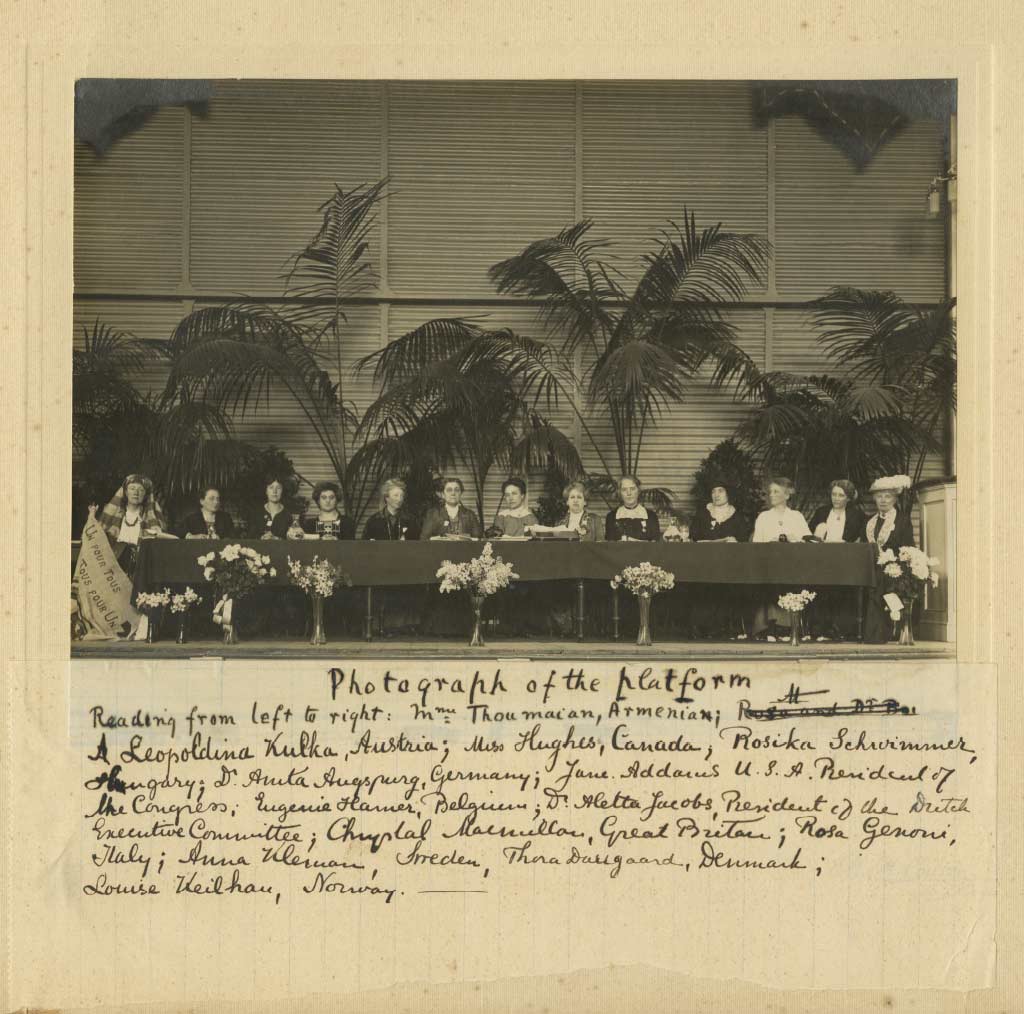 UN POUR TOUS
TOUS POUR UN
Photograph of the platform
Reading from left to right: Mme Thoumaian, Armenian; Rosa and Dr
Leopoldina Kulka, Austria; Miss Hughes, Canada; Rosika Schwimmer,
Hungary; Dr. Anita Augspurg, Germany; Jane Addams U.S.A. President of
the Congress; Eugenie Hamer, Belgium; Dr. Aletta Jacobs, President of the Dutch
Executive Committee; Chrystal Macmillan, Great Britan; Rosa Genoni,
Italy; Anna Kleman, Sweden, Thora Daugaard, Denmark;
Louise Keilhau, Norway.